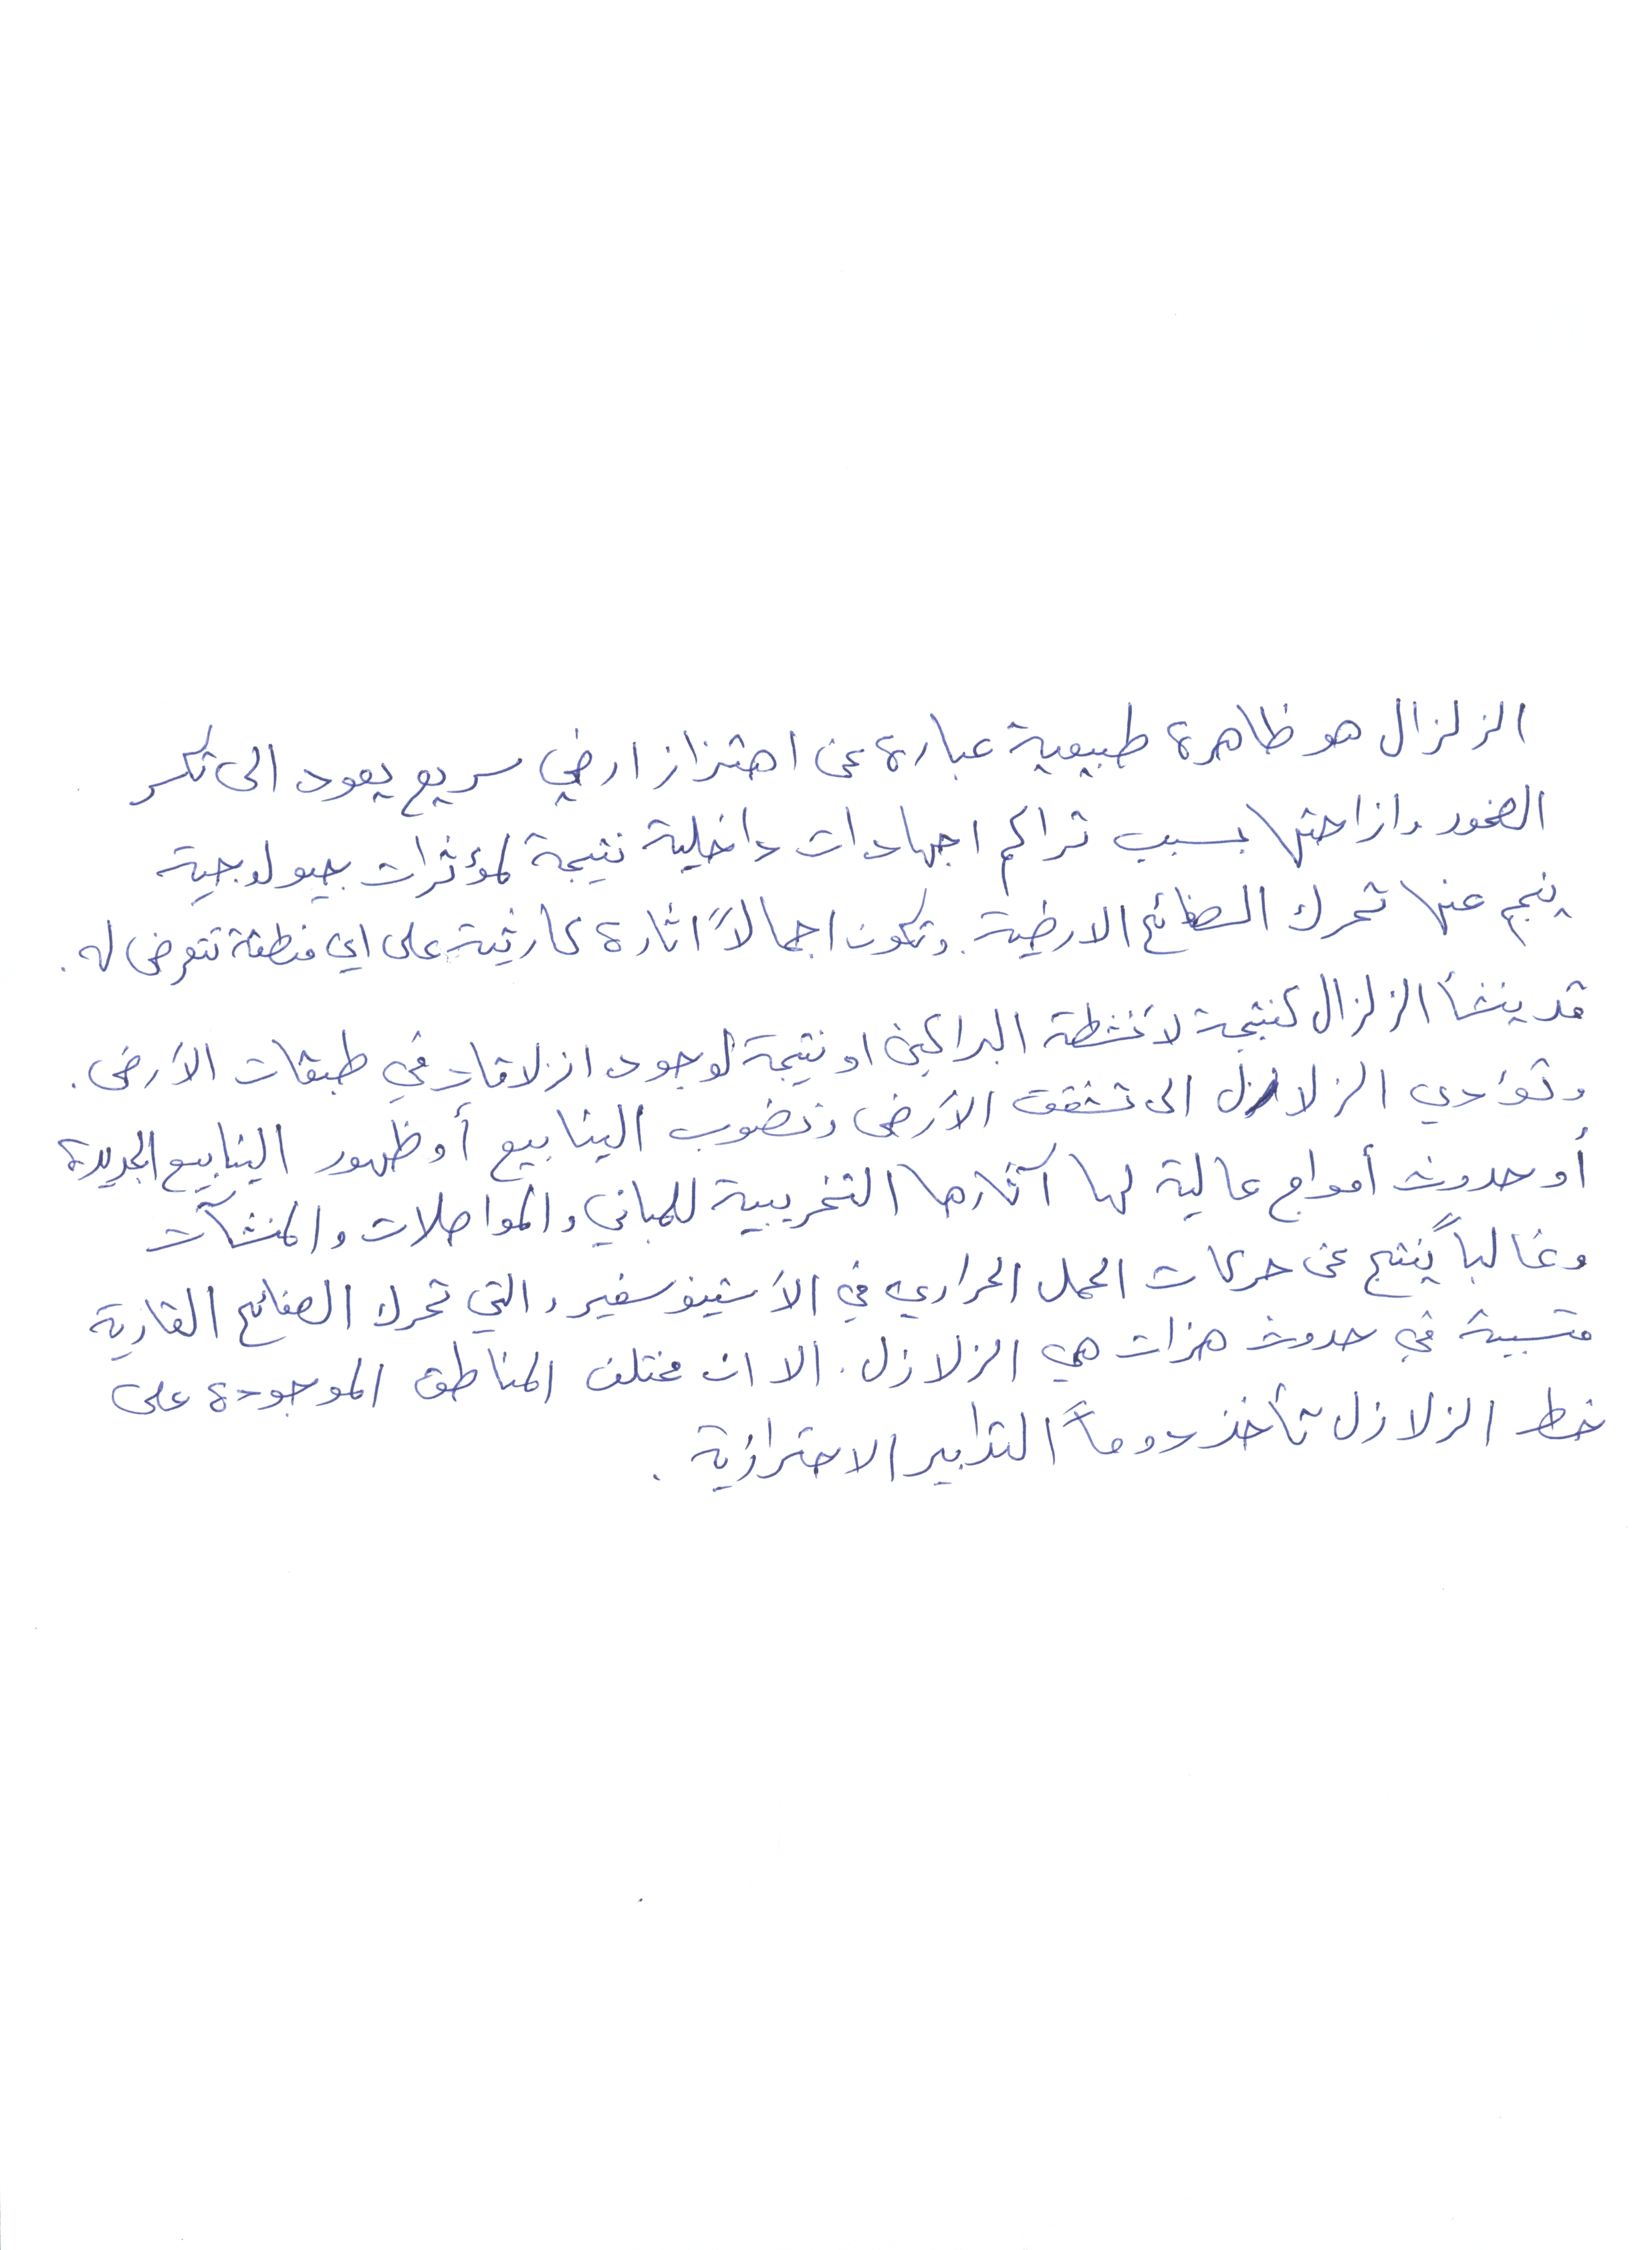 الزلزال هو ظاهرة طبيعية عبارة عن اهتزاز ارضي سريع يعود الى تكسر
الصخور وازاحتها بسبب تراكم اجهادات داخلية نتيجة لمؤثرات جيولوجية
ينجم عنها تحرك الصفائح الارضية. وتكون اجمالاً اثاره كارثية على اي منطقة تتعرض له.
قد ينشأ الزلزال كنتيجة لأنشطة البراكين او نتيجة لوجود انزلاقات في طبقات الأرض.
وتؤدي الزلازل الى تشقق الأرض ونضوب الينابيع أو ظهور الينابيع الجديدة
أو حدوث أمواج عالية لها آثارها التخريبية للمباني والمواصلات والمنشآت
وغالباً ينتج عن حركات الحمل الحراري في الأستينوسفير، والتي تحرك الصفائح القارية
متسببة في حدوث هزات هي الزلازل. الا ان مختلف المناطق الموجودة على
خط الزلازل تأخذ دوماً التدابير الاحترازية.